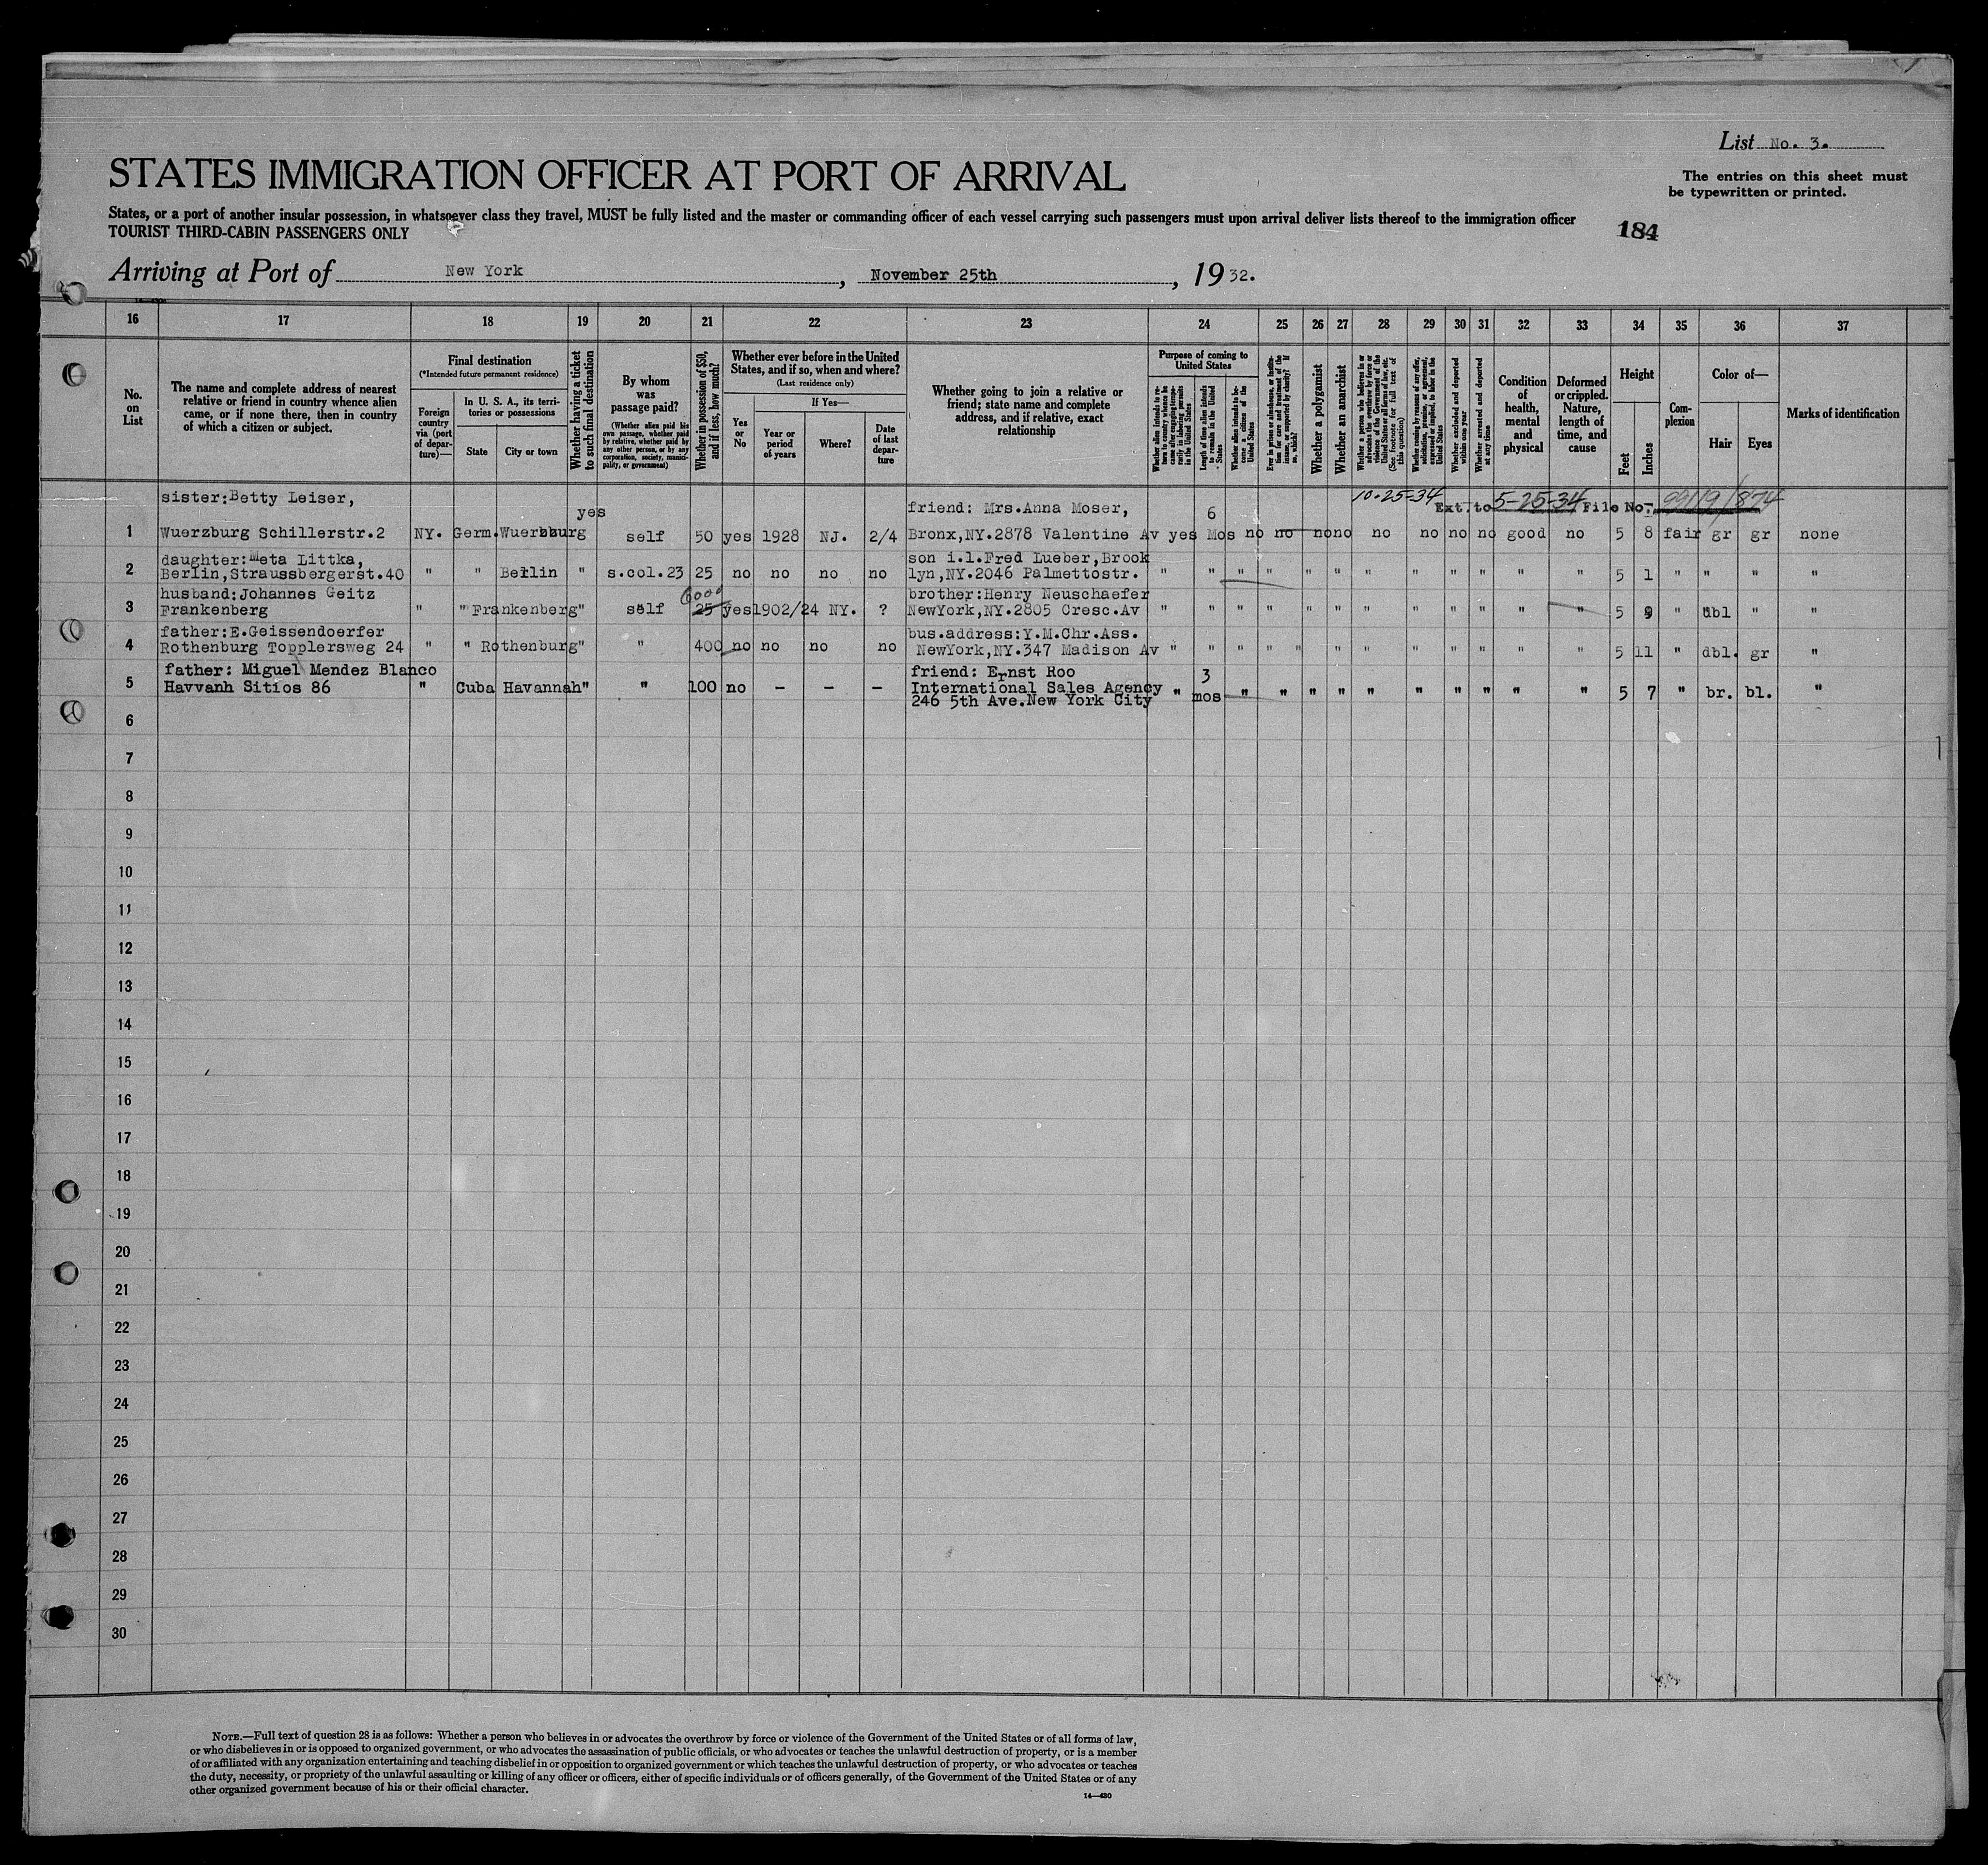 List No. 3.
STATES IMMIGRATION OFFICER AT PORT OF ARRIVAL
The entries on this sheet must
be typewritten or printed.
States, or a port of another insular possession, in whatsoever class they travel, MUST be fully listed and the master or commanding officer of each vessel carrying such passengers must upon arrival deliver lists thereof to the immigration officer
TOURIST THIRD-CABIN PASSENGERS ONLY
184
Arriving at Port of New York, November 25th, 1932.
16 17 18 19 20 21 22 23 24 25 26 27 28 29 30 31 32 33 34 35 36 37
No.
on
List
The name and complete address of nearest
relative or friend in country whence alien
came, or if none there, then in country
of which a citizen or subject.
Final destination
(*Intended future permanent residence)
Foreign
country
via (port
of depar-
ture)—
In U. S. A., its terri-
tories or possessions
State
City or town
Whether having a ticket
to such final destination
By whom
was
passage paid?
(Whether alien paid his
own passage, whether paid
by relative, whether paid by
any other person, or by any
corporation, society, munici-
pality, or government)
Whether in possession of $50,
and if less, how much?
Whether ever before in the United
States, and if so, when and where?
(Last residence only)
Yes
or
No
If Yes—
Year or
period
of years
Where?
Date
of last
depar-
ture
Whether going to join a relative or
friend; state name and complete
address, and if relative, exact
relationship
Purpose of coming to
United States
Whether alien intends to re-
turn to country whence he
came after engaging tempo-
rarily in laboring pursuits
in the United States
Length of time alien intends
to remain in the United
States
Whether alien intends to be-
come a citizen of the
United States
Ever in prison or almshouse, or institu-
tion for care and treatment of the
insane, or supported by charity? If
so, which?
Whether a polygamist
Whether an anarchist
Whether a person who believes in or
advocates the overthrow by force or
violence of the Government of the
United States or all forms of law, etc.
(See footnote for full text of
this question)
Whether coming by reason of any offer,
solicitation, promise, or agreement,
expressed or implied, to labor in the
United States
Whether excluded and deported
within one year
Whether arrested and deported
at any time
Condition
of
health,
mental
and
physical
Deformed
or crippled.
Nature,
length of
time, and
cause
Height
Feet
Inches
Com-
plexion
Color of—
Hair
Eyes
Marks of identification
sister:Betty Leiser, yes friend: Mrs.Anna Moser, 6 10-25-34 Ext.to 5-25-34 File No. 99/19/874
1 Wuerzburg Schillerstr.2 NY. Germ.Wuerzburg self 50 yes 1928 NJ. 2/4 Bronx,NY.2878 Valentine Av yes Mos no no nono no no no no good no 5 8 fair gr gr none
daughter:Meta Littka, son i.l.Fred Lueber,Brook
2 Berlin,Straussbergerst.40 " " Berlin " s.col.23 25 no no no no lyn,NY.2046 Palmettostr. " " " " " " " " " " " " 5 1 " " " "
husband:Johannes Geitz 6000 brother:Henry Neuschaefer
3 Frankenberg " " Frankenberg" self 25 yes1902/24 NY. ? NewYork,NY.2805 Cresc.Av " " " " " " " " " " " " 5 9 " dbl " "
father:E.Geissendoerfer bus.address:Y.M.Chr.Ass.
4 Rothenburg Topplersweg 24 " " Rothenburg" " 400 no no no no NewYork,NY.347 Madison Av " " " " " " " " " " " " 5 11 " dbl. gr "
father: Miguel Mendez Blanco friend: Ernst Roo 3
5 Havvanh Sitios 86 " Cuba Havannah" " 100 no - - - International Sales Agency " mos " " " " " " " " " " 5 7 " br. bl. "
246 5th Ave.New York City
6
7
8
9
10
11
12
13
14
15
16
17
18
19
20
21
22
23
24
25
26
27
28
29
30
NOTE.—Full text of question 28 is as follows: Whether a person who believes in or advocates the overthrow by force or violence of the Government of the United States or of all forms of law,
or who disbelieves in or is opposed to organized government, or who advocates the assassination of public officials, or who advocates or teaches the unlawful destruction of property, or is a member
of or affiliated with any organization entertaining and teaching disbelief in or opposition to organized government or which teaches the unlawful destruction of property, or who advocates or teaches
the duty, necessity, or propriety of the unlawful assaulting or killing of any officer or officers, either of specific individuals or of officers generally, of the Government of the United States or of any
other organized government because of his or their official character.
14—430